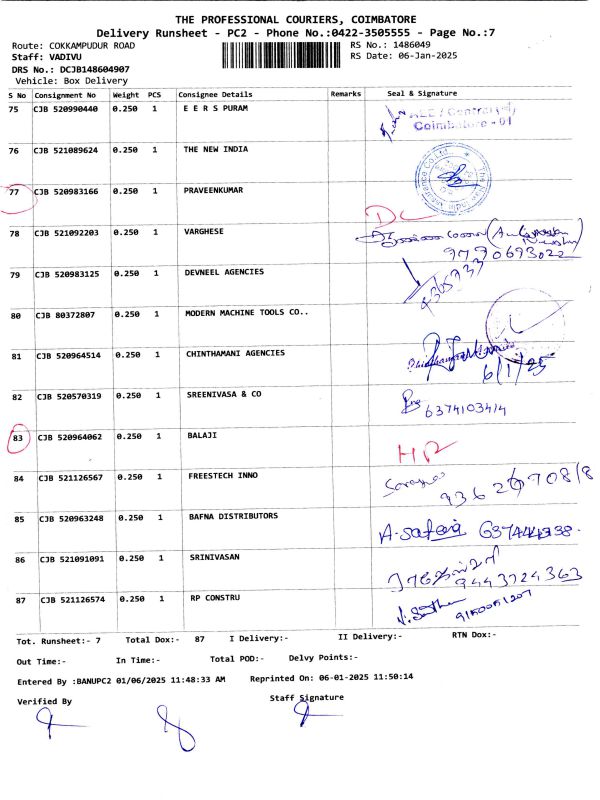 THE PROFESSIONAL COURIERS, COIMBATORE
Delivery Runsheet - PC2 - Phone No.:0422-3505555 - Page No.:7
Route: COKKAMPUDUR ROAD RS No.: 1486049
Staff: VADIVU RS Date: 06-Jan-2025
DRS No.: DCJB148604907
Vehicle: Box Delivery
S No Consignment No Weight PCS Consignee Details Remarks Seal & Signature
75 CJB 520990440 0.250 1 E E R S PURAM AEE / Central
Coimbatore - 01
76 CJB 521089624 0.250 1 THE NEW INDIA
77 CJB 520983166 0.250 1 PRAVEENKUMAR DL
78 CJB 521092203 0.250 1 VARGHESE
9790693022
79 CJB 520983125 0.250 1 DEVNEEL AGENCIES
80 CJB 80372807 0.250 1 MODERN MACHINE TOOLS CO..
81 CJB 520964514 0.250 1 CHINTHAMANI AGENCIES
6/1/25
82 CJB 520570319 0.250 1 SREENIVASA & CO
6374103414
83 CJB 520964062 0.250 1 BALAJI
84 CJB 521126567 0.250 1 FREESTECH INNO
85 CJB 520963248 0.250 1 BAFNA DISTRIBUTORS
86 CJB 521091091 0.250 1 SRINIVASAN
9443724363
87 CJB 521126574 0.250 1 RP CONSTRU
Tot. Runsheet:- 7 Total Dox:- 87 I Delivery:- II Delivery:- RTN Dox:-
Out Time:- In Time:- Total POD:- Delvy Points:-
Entered By :BANUPC2 01/06/2025 11:48:33 AM Reprinted On: 06-01-2025 11:50:14
Verified By Staff Signature